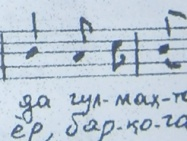 да гул-мах-т
ёр, бар-ко-га